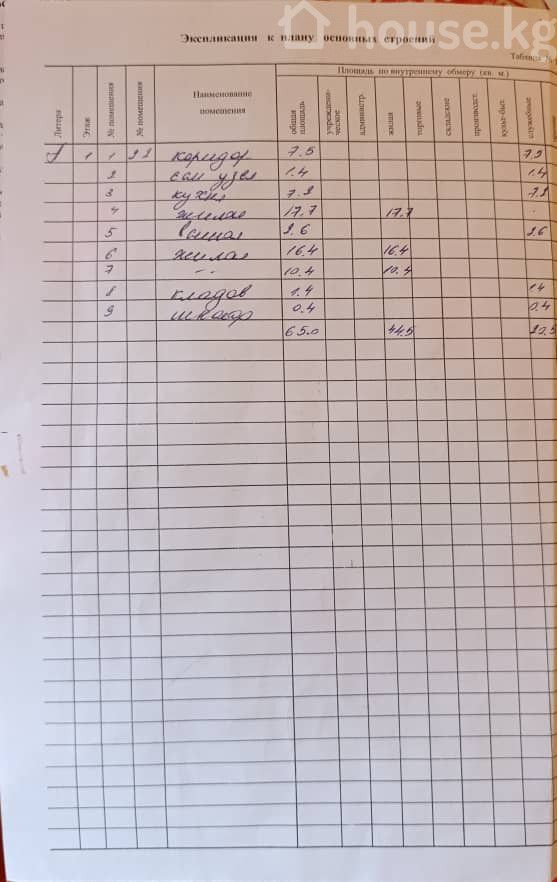 house.kg
Экспликация к плану основных строений
Таблица №1
Литера
Этаж
№ помещения
№ помещения
Наименование помещения
Площадь по внутреннему обмеру (кв. м.)
общая площадь
учрежденческое
администр.
жилая
торговые
складские
производст.
культ-быт.
служебные
1 1 22 коридор 7.5
2 сан узел 1.4 1.4
3 кухня 7.2 7.2
4 жилая 17.7 17.7
5 ванная 2.6 2.6
6 жилая 16.4 16.4
7 -"- 10.4 10.4
8 кладов 1.4 1.4
9 шкаф 0.4 0.4
65.0 44.5 20.5